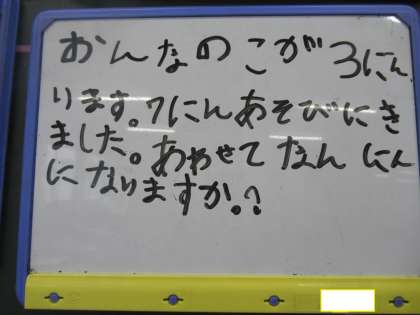 おんなのこが3にん
います。7にんあそびにき
ました。あわせてなんにん
になりますか。?